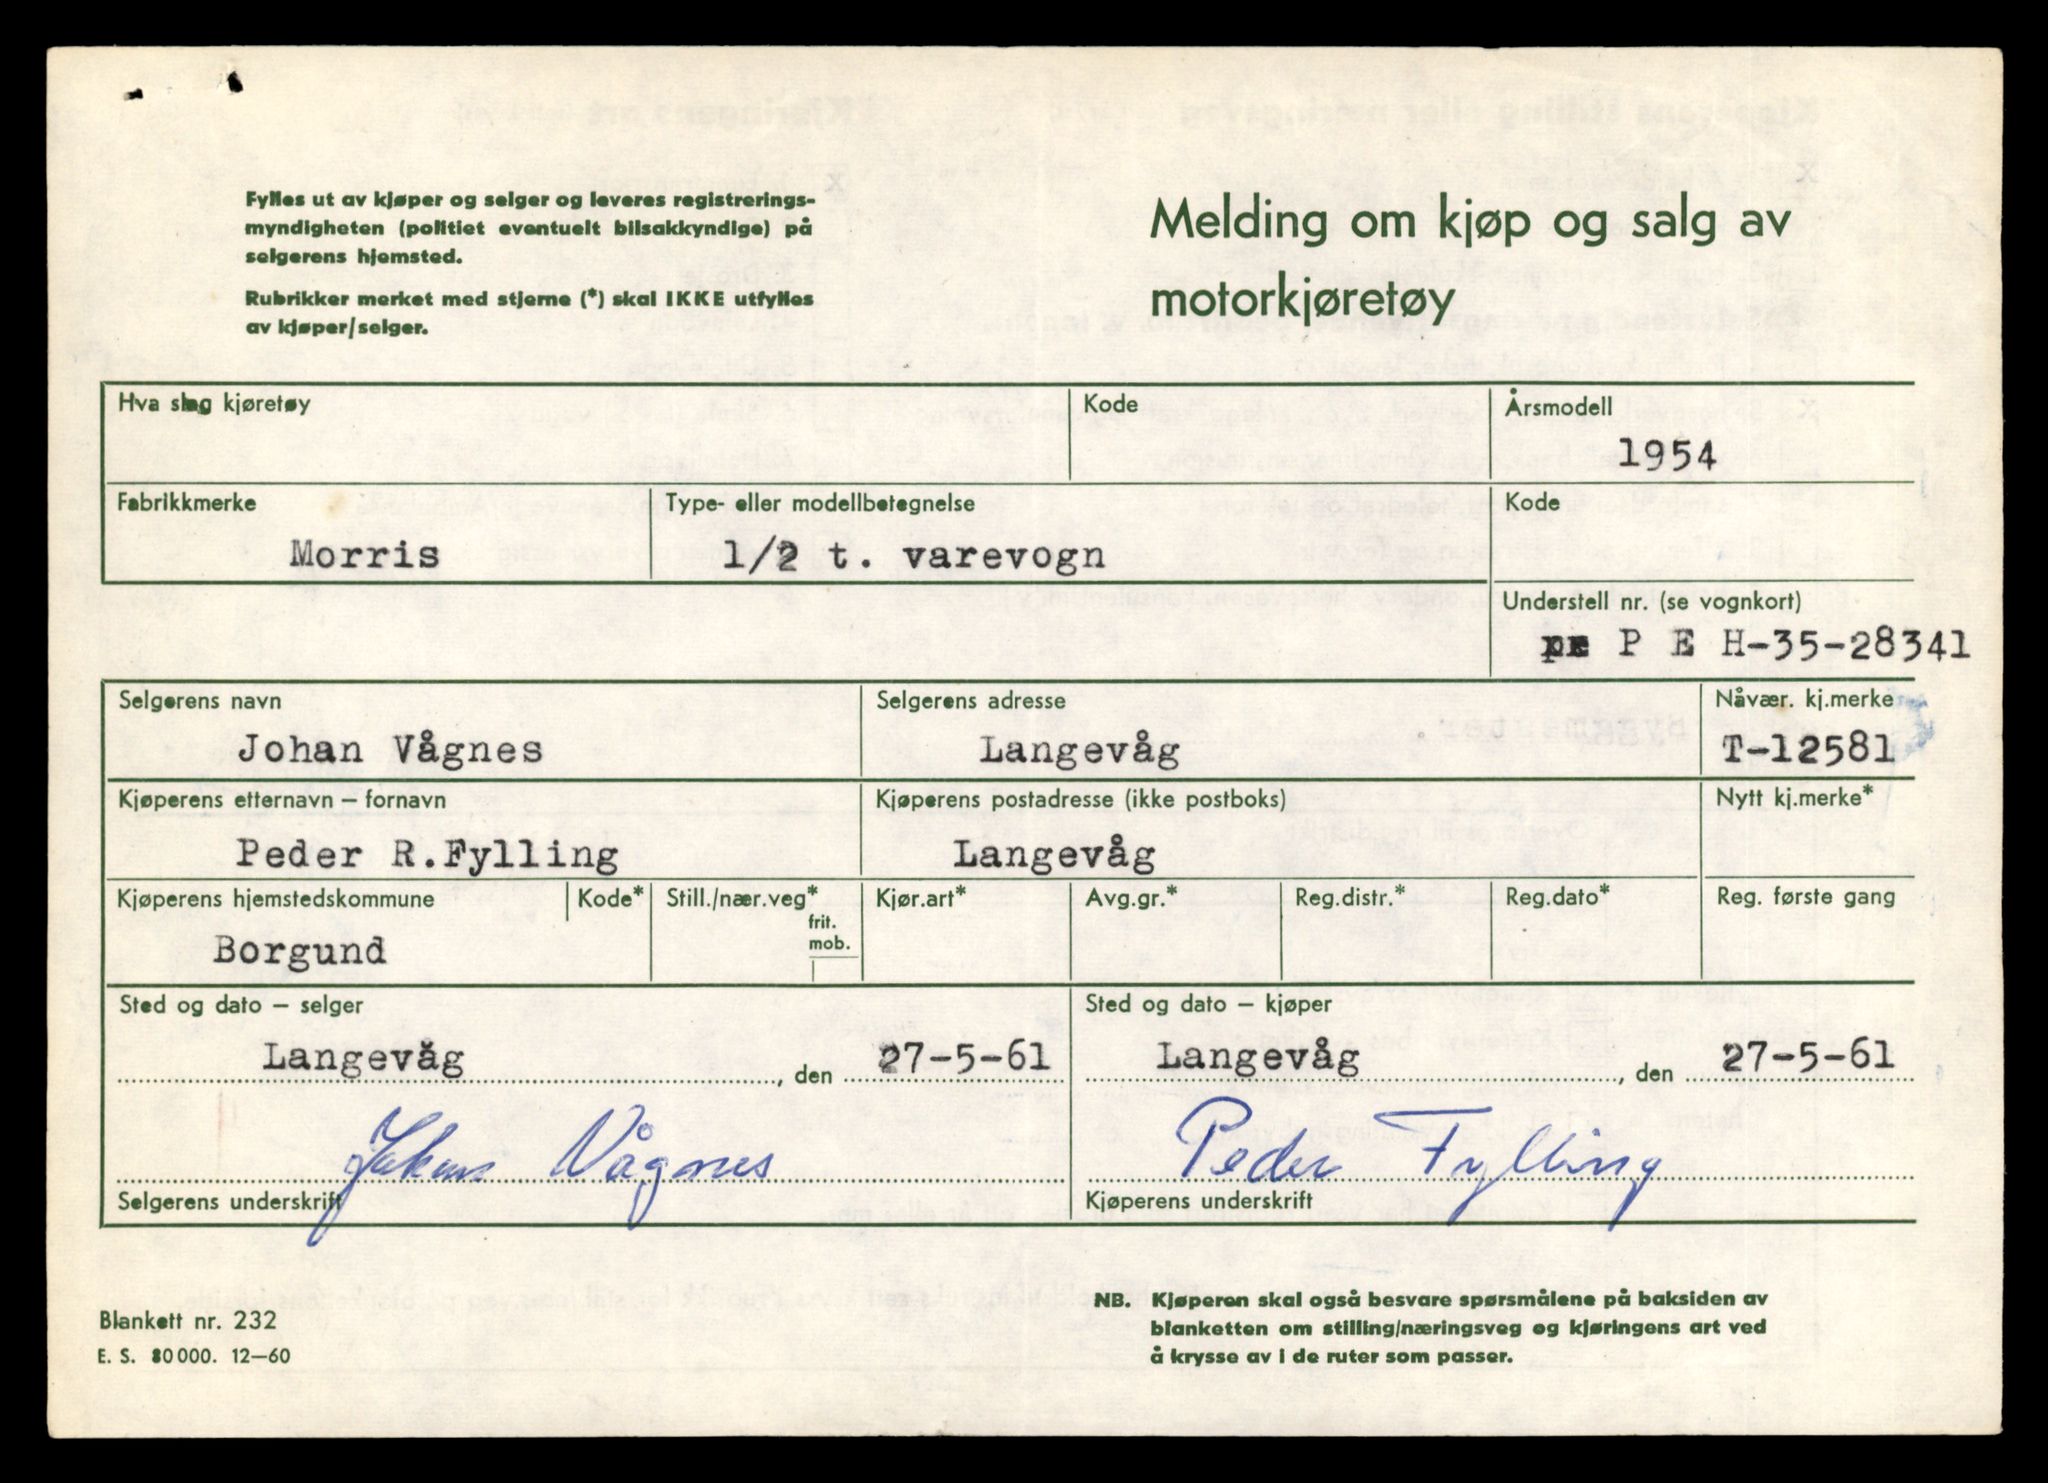 Fylles ut av kjøper og selger og leveres registrerings-
myndigheten (politiet eventuelt bilsakkyndige) på
selgerens hjemsted.
Rubrikker merket med stjerne (*) skal IKKE utfylles
av kjøper/selger.
Melding om kjøp og salg av
motorkjøretøy
Hva slag kjøretøy
Kode
Årsmodell
1954
Fabrikkmerke
Type- eller modellbetegnelse
Kode
Morris
1/2 t. varevogn
Understell nr. (se vognkort)
P E H-35-28341
Selgerens navn
Selgerens adresse
Nåvær. kj.merke
Johan Vågnes
Langevåg
T-12581
Kjøperens etternavn – fornavn
Kjøperens postadresse (ikke postboks)
Nytt kj.merke*
Peder R.Fylling
Langevåg
Kjøperens hjemstedskommune
Kode*
Still./nær.veg*
frit.
mob.
Kjør.art*
Avg.gr.*
Reg.distr.*
Reg.dato*
Reg. første gang
Borgund
Sted og dato – selger
Sted og dato – kjøper
Langevåg, den 27-5-61
Langevåg, den 27-5-61
Johan Vågnes
Peder Fylling
Selgerens underskrift
Kjøperens underskrift
Blankett nr. 232
E. S. 80 000. 12–60
NB. Kjøperen skal også besvare spørsmålene på baksiden av
blanketten om stilling/næringsveg og kjøringens art ved
å krysse av i de ruter som passer.